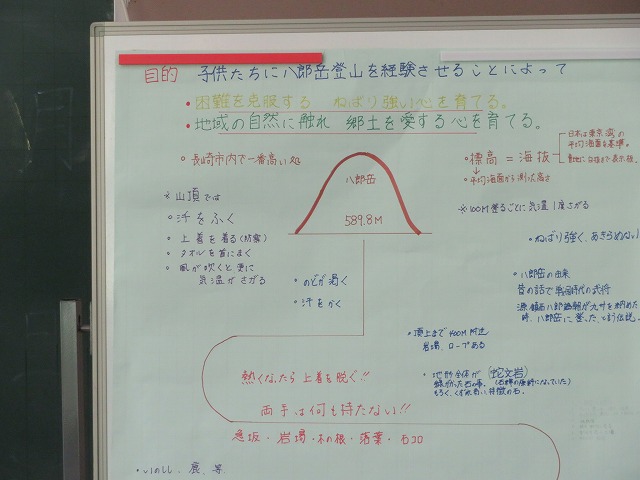 目的 子供たちに八郎岳登山を経験させることによって
・困難を克服する ねばり強い心を育てる。
・地域の自然に触れ 郷土を愛する心を育てる。
・長崎市内で一番高い処
八郎岳
589.8M
・標高 = 海抜
日本は東京湾の
平均海面を基準。
平均海面から測った高さ
※100M登るごとに気温1度さがる
※山頂では
・汗をふく
・上着を着る(防寒)
・タオルを首にまく
・風が吹くと更に
気温がさがる
・のどが渇く
・汗をかく
・ねばり強く、あきらめない
・八郎岳の由来
昔の話で戦国時代の武将
源 鎮西八郎為朝が九州を納めた
時、八郎岳に登った、と言う伝説。
・頂上まで400M附近
岩場、ロープある
・地形全体が(蛇文岩)
もろく、くずれ易い
熱くなったら上着を脱ぐ!!
両手は何も持たない!!
急坂・岩場・木の根・落葉・石コロ
・いのしし、